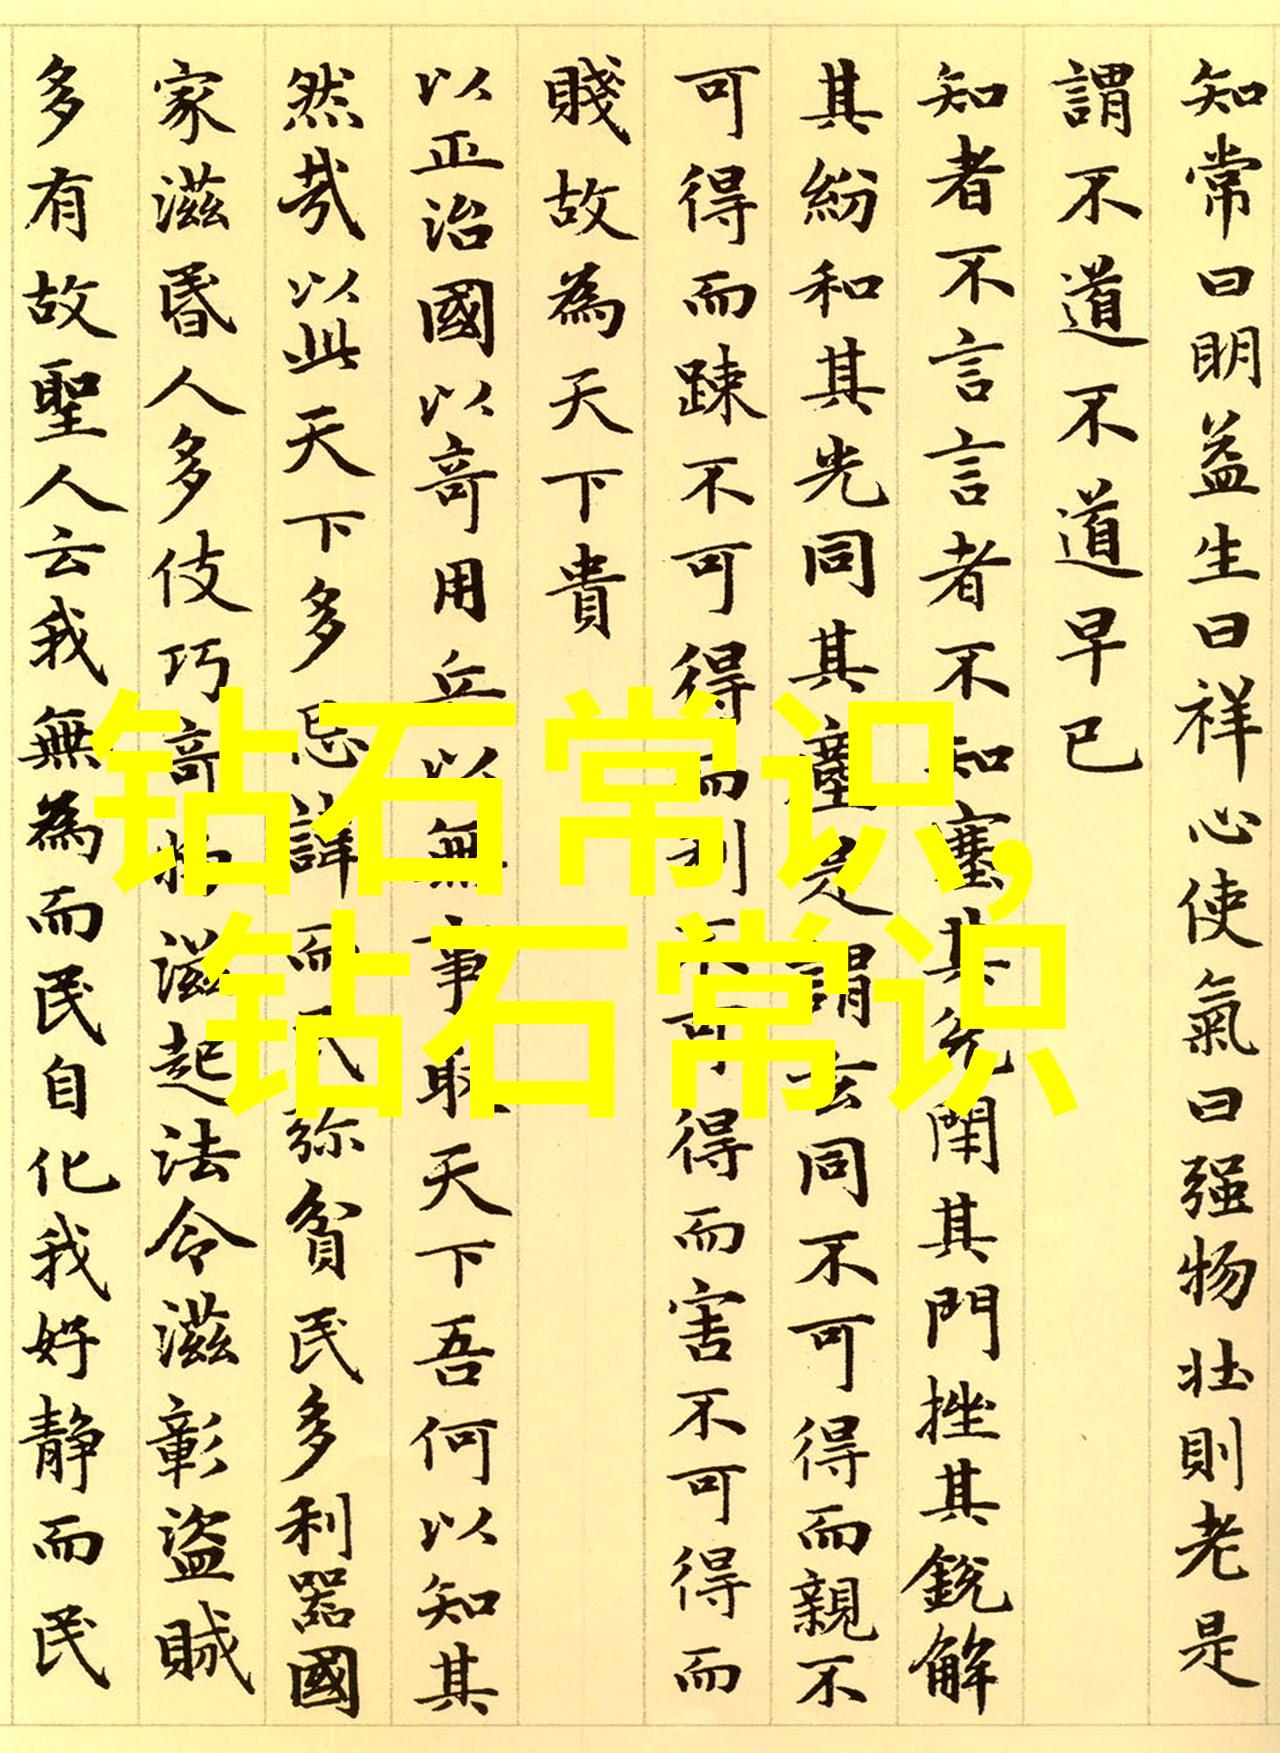 知常曰明益生曰祥心使氣曰强物壯則老是
謂不道不道早已
知者不言言者不知塞其兑閉其門挫其銳解
其紛和其光同其塵是謂玄同不可得而親不
可得而踈不可得而利不可得而害不可得而
賤故為天下貴
以正治國以奇用兵以無事取天下吾何以知其
然哉以此天下多忌諱而民弥貧民多利器國
家滋昬人多伎巧奇物滋起法令滋彰盜賊
多有故聖人云我無為而民自化我好静而民
钻石常识,
钻石常识